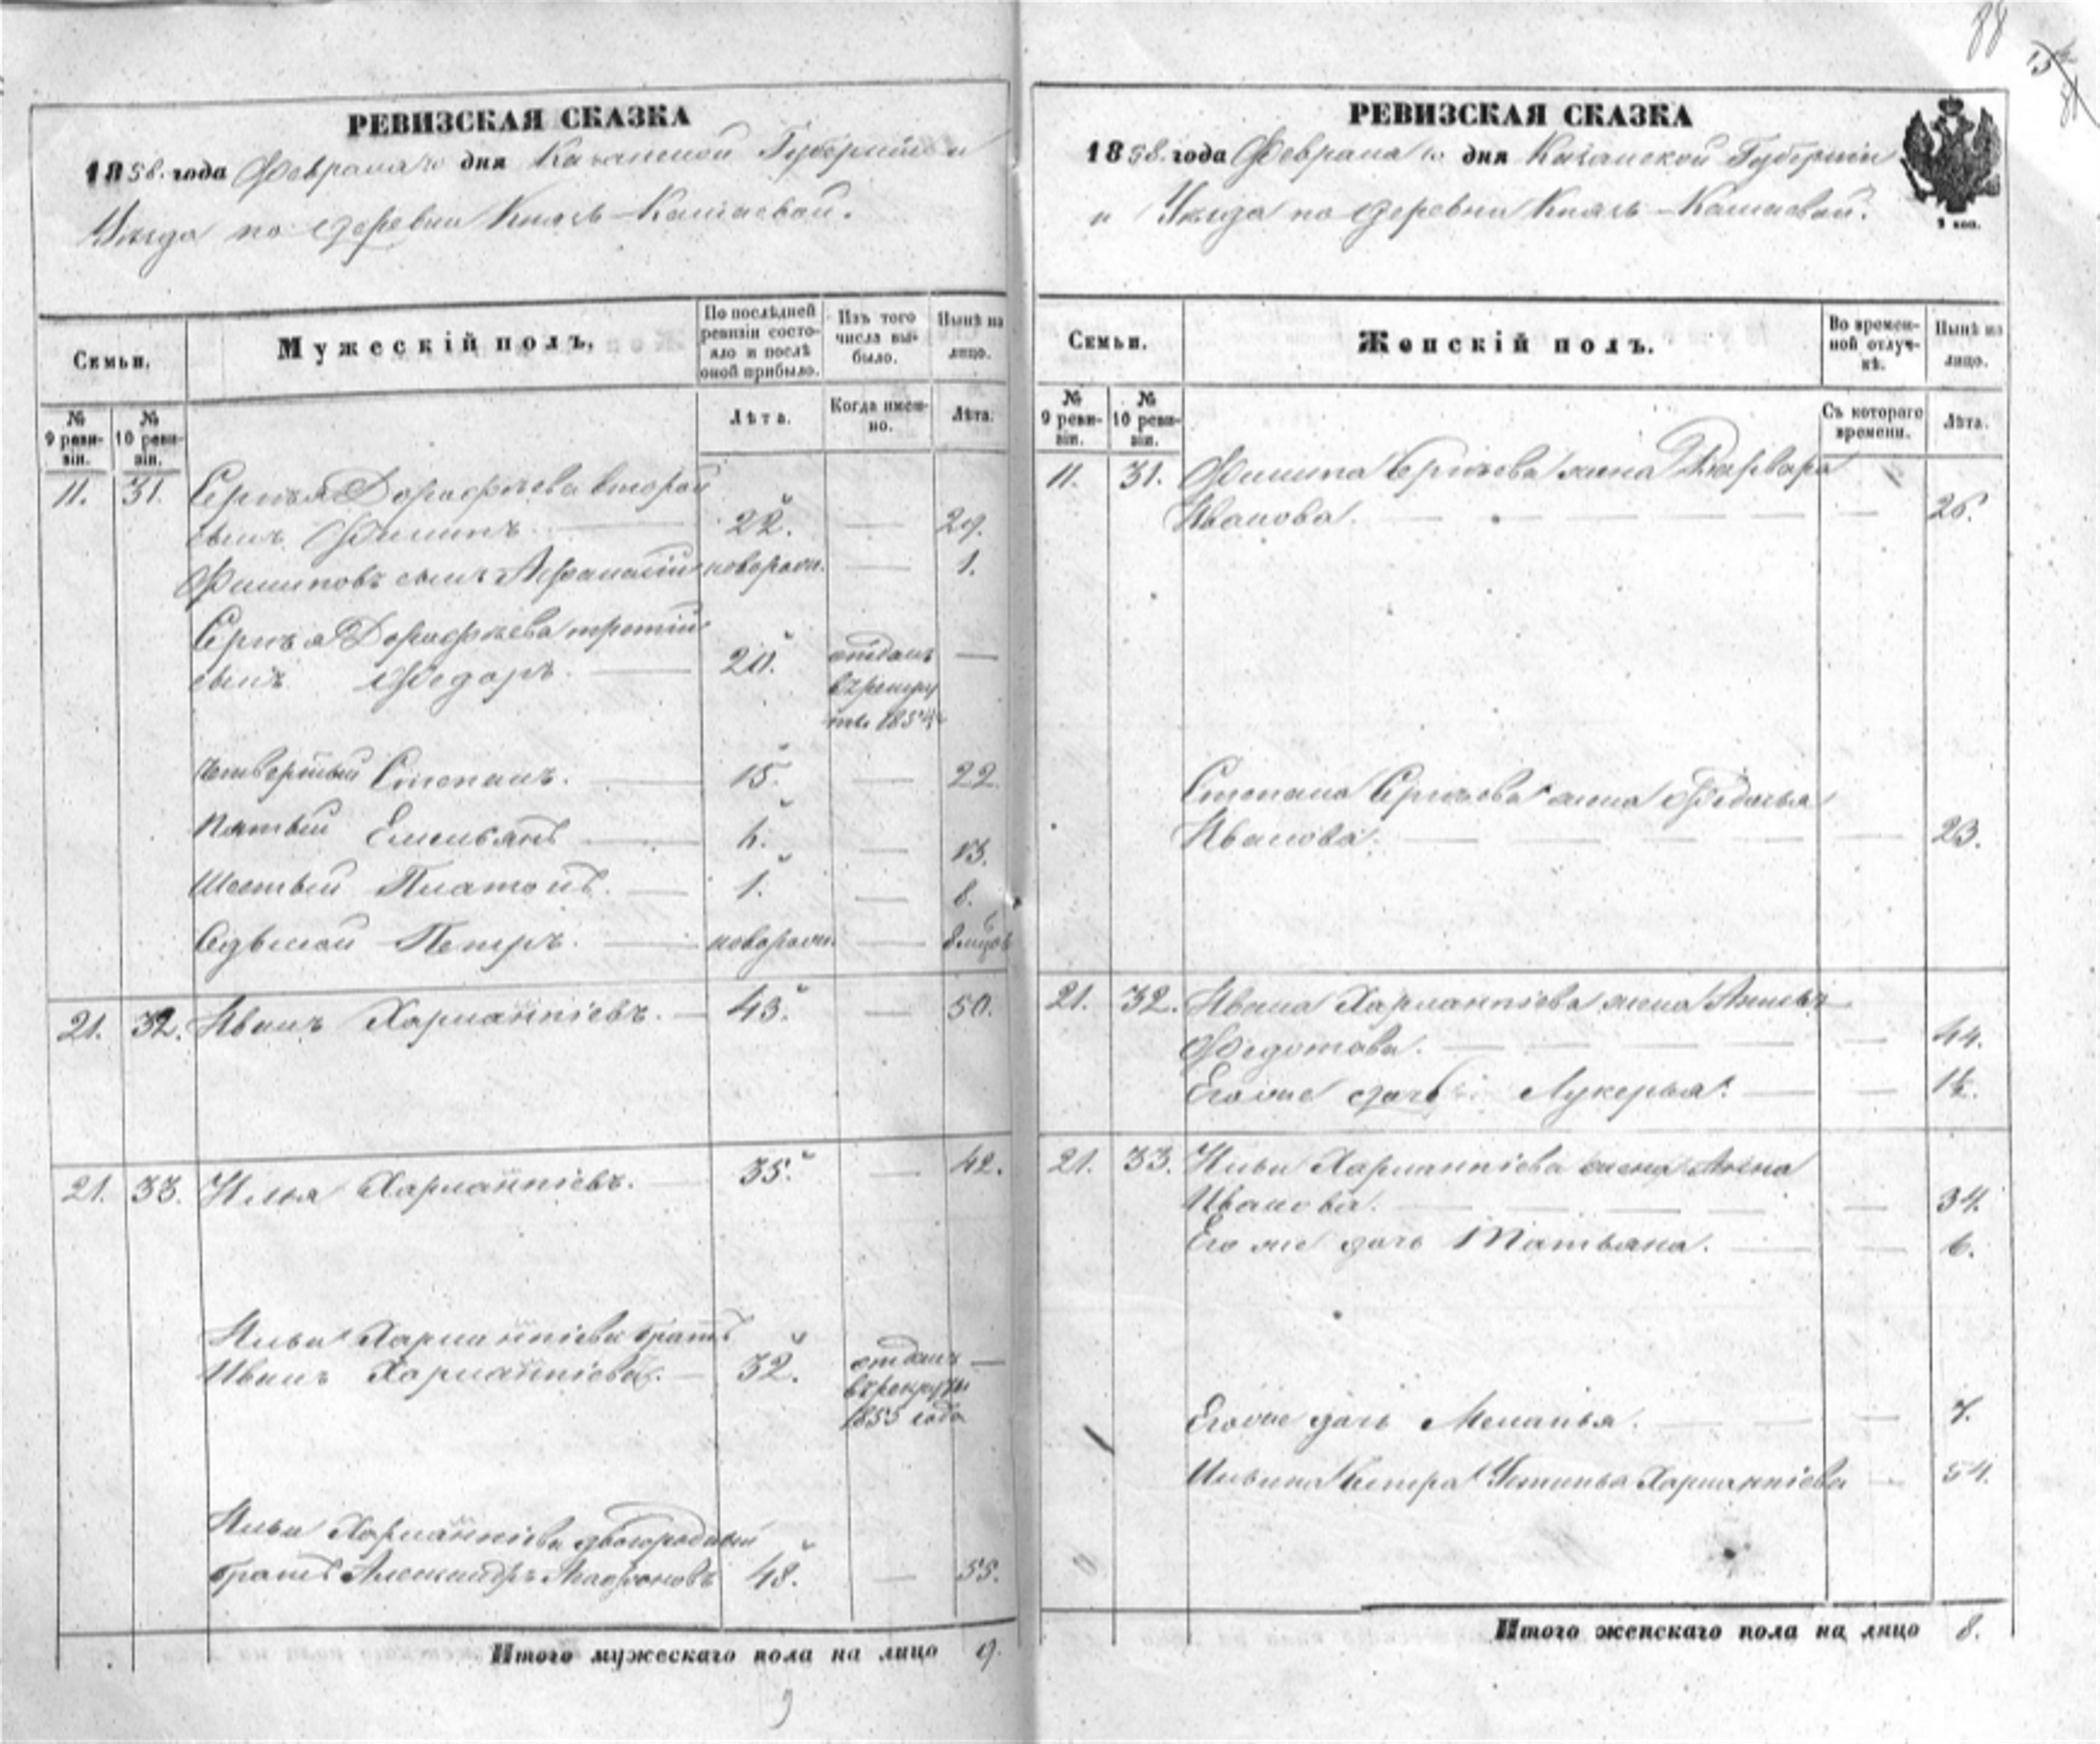 88
РЕВИЗСКАЯ СКАЗКА
1858. года Февраля 10 дня Казанской Губерніи и
Уѣзда по деревни Князь-Камаевой.
Семьи.
Мужескій полъ.
По послѣдней ревизіи состояло и послѣ оной прибыло.
Изъ того числа выбыло.
Нынѣ на лицо.
№ 9 ревизіи.
№ 10 ревизіи.
Лѣта.
Когда именно.
Лѣта.
11. 31. Сергѣя Дорофѣева второй
сынъ Филипъ. 22. 29.
Филиповъ сынъ Афанасій новорожд. 1.
Сергѣя Дорофѣева третій
сынъ Федоръ. 20. отданъ
въ рекру
ты 1854
Четвертый Степанъ. 15. 22.
Пятый Емельянъ 6. 13.
Шестый Платонъ. 1. 8.
Седьмой Петръ. новорожд. 8 мцовъ
21. 32. Иванъ Харлампіевъ. 43. 50.
21. 33. Илья Харлампіевъ. 35. 42.
Ильи Харлампіева братъ
Иванъ Харлампіевъ. 32. отданъ
въ рекруты
1855 года
Ильи Харлампіева двоюродный
братъ Александръ Агафоновъ 48. 55.
Итого мужескаго пола на лицо 9.
9
РЕВИЗСКАЯ СКАЗКА
1858. года Февраля 10 дня Казанской Губерніи
и Уѣзда по деревни Князь-Камаевой.
9 коп.
Семьи.
Женскій полъ.
Во временной отлучкѣ.
Нынѣ на лицо.
№ 9 ревизіи.
№ 10 ревизіи.
Съ котораго времени.
Лѣта.
11. 31. Филипа Сергѣева жена Варвара
Иванова. 26.
Степана Сергѣева жена Федосья
Иванова. 23.
21. 32. Ивана Харлампіева жена
Федотова. 44.
Его же дочь Лукерья. 16.
21. 33. Ильи Харлампіева жена Анна
Иванова. 34.
Его же дочь Татьяна. 6.
Его же дочь Меланья. 7.
Ильина сестра Устинья Харлампіева 54.
Итого женскаго пола на лицо 8.